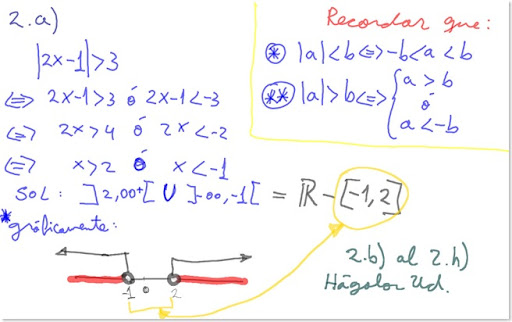 2.a)
|2x-1|>3
<=> 2x-1>3 ó 2x-1<-3
<=> 2x>4 ó 2x<-2
<=> x>2 ó x<-1
SOL: ]2,∞+[ U ]-∞,-1[ = ℝ-[-1,2]
*gráficamente:
-1 0 2
Recordar que:
(*) |a|<b<=>-b<a<b
(**) |a|>b<=>{a>b
ó
a<-b
2.b) al 2.h)
Hágalos Ud.